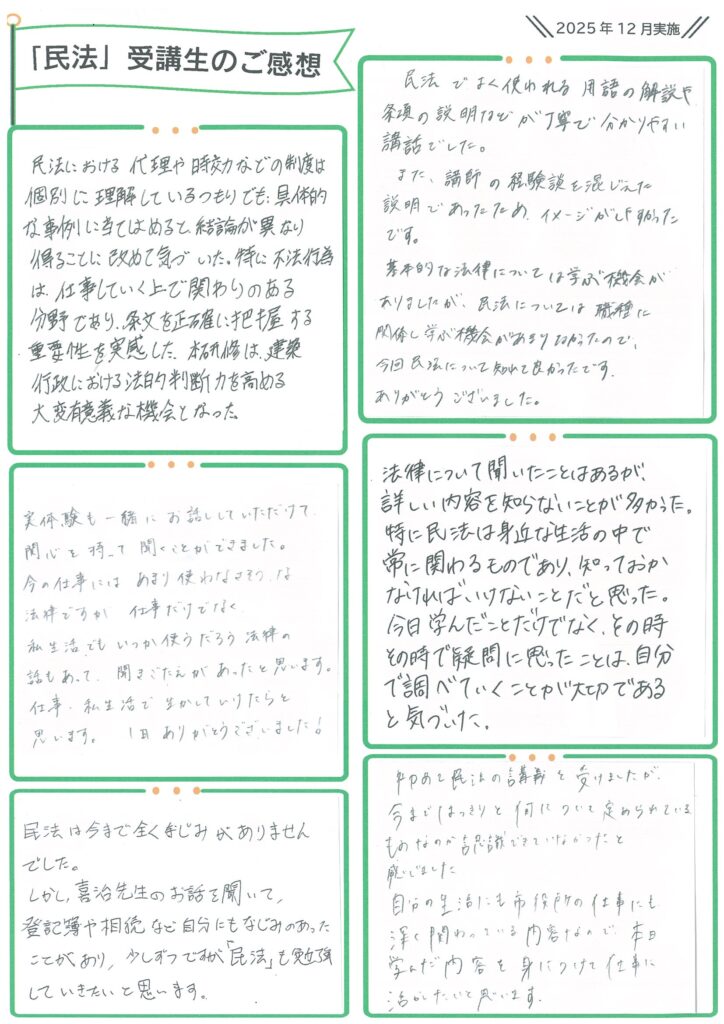 「民法」受講生のご感想
2025年12月実施
民法における 代理や時効などの制度は
個別に理解しているつもりでも、具体的
な事例に当てはめると、結論が異なり
得ることに改めて気づいた。特に不法行為
は、仕事していく上で関わりのある
分野であり、条文を正確に把握する
重要性を実感した。本研修は、建築
行政における法的判断力を高める
大変有意義な機会となった。
実体験も一緒にお話ししていただけて、
関心を持って聞くことができました。
今の仕事には あまり使わなさそうな
法律ですが 仕事だけでなく、
私生活でもいつか使うだろう法律の
話もあって、聞きごたえがあったと思います。
仕事、私生活で生かしていけたらと
思います。 1日ありがとうございました!
民法は今まで全くなじみがありません
でした。
しかし、喜治先生のお話を聞いて、
登記簿や相続など自分にもなじみのあった
ことがあり、少しずつですが「民法」も勉強
していきたいと思います。
民法でよく使われる用語の解説や
条項の説明などが丁寧で分かりやすい
講話でした。
また、講師の経験談を混じえた
説明であったため、イメージがしやすかった
です。
基本的な法律については学ぶ機会が
ありましたが、民法については職種に
関係し学ぶ機会があまりなかったので、
今回民法について知れて良かったです。
ありがとうございました。
法律について聞いたことはあるが、
詳しい内容を知らないことが多かった。
特に民法は身近な生活の中で
常に関わるものであり、知っておか
なければいけないことだと思った。
今日学んだことだけでなく、その時
その時で疑問に思ったことは、自分
で調べていくことが大切である
と気づいた。
初めて民法の講義を受けましたが、
今まではっきりと何について定められている
ものなのか認識できていなかったと
感じました
自分の生活にも市役所の仕事にも
深く関わっている内容なので、本日
学んだ内容を身につけて仕事に
活かしたいと思います。